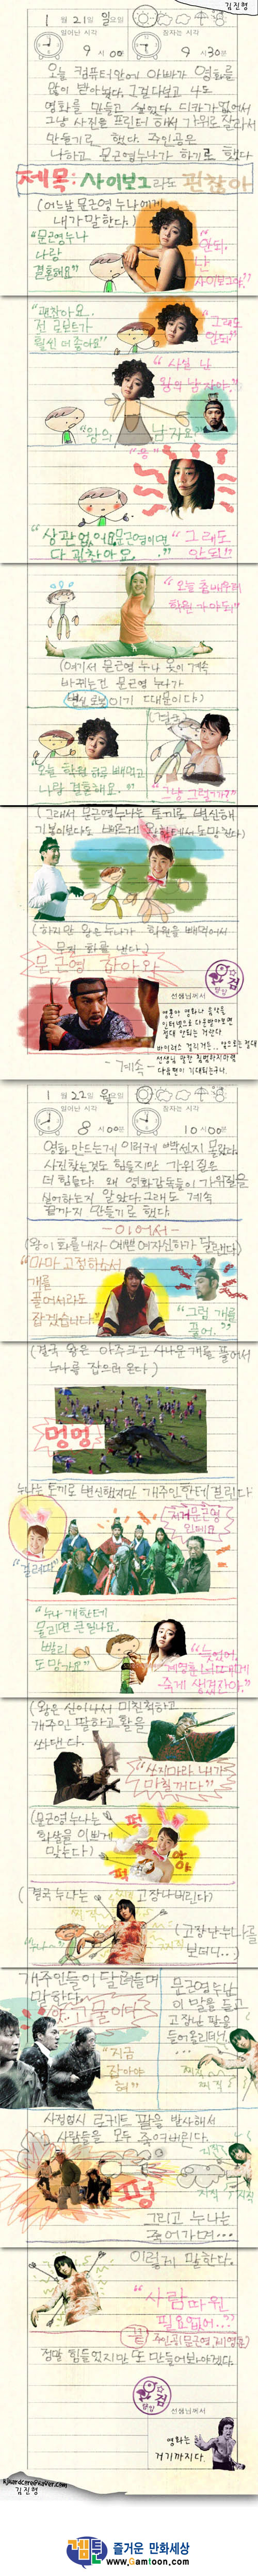 김진형
1월 21일 일요일
일어난 시각
잠자는 시각
9시 00분
9시 30분
오늘 컴퓨터안에 아빠가 영화를
많이 받아놨다. 그걸 다보고 나도
영화를 만들고 싶었다. 디카가 없어서
그냥 사진을 프린터 해서 가위로 잘라서
만들기로 했다. 주인공은
나하고 문근영누나가 하기로 했다
제목: 사이보그라도 괜찮아
(어느날 문근영 누나에게
내가 말한다.)
"문근영누나
나랑
결혼해요"
"안되.
난
사이보그야."
"괜찮아요.
전 로보트가
훨씬 더 좋아요"
"그래도
안되"
"사실 난
왕의 남자야."
"왕의 남자요?"
"응"
"상관없어요. 문근영이면
다 괜찮아요."
"그래도
안되"
"오늘 춤배우러
학원 가야되"
(여기서 문근영 누나 옷이 계속
바뀌는건 문근영 누나가
변신로봇이기 때문이다)
"오늘 학원 빼먹고
나랑 결혼해요."
"그냥 그럴까?"
(그래서 문근영누나는 토끼로 변신해
(하지만 왕은 누나가 학원을 빼먹어서
무척 화를 낸다.)
문근영 잡아와
선생님께서
영훈아 영화나 음악을
인터넷으로 다운받아보면
절대 안되는 거란다
-계속-
1월 22일 월요일
일어난 시각
잠자는 시각
8시 00분
10시 00분
영화 만드는게 이렇게 빡센지 몰랐다.
사진찾는것도 힘들지만 가위질은
더 힘들다. 왜 영화감독들이 가위질을
싫어하는지 알았다. 그래도 계속
끝까지 만들기로 했다.
-이어서-
"마마 고정하소서
개를
풀어서라도
잡겠습니다"
"그럼 개를
풀어."
(결국 왕은 아주크고 사나운 개를 풀어서
누나를 잡으러 온다.)
멍멍
누나는 토끼로 변신했지만 개주인한테 걸린다
"걸렸다"
저거 문근영
인데요
"누나 개한테
물리면 큰일나요
빨리
도망가요"
"늦었어.
(왕은 신이나서 미친척하고
개주인 말하고 활을
쏴댄다.
(문근영 누나는
화살을 이쁘게
맞는다)
퍽
퍽
아야
(결국 누나는
고장나버린다)
찌직
"누나~"
(고장난 누나는 나를
보더니...)
개주인들이 달려들며
말한다.
야..고물이다
"지금
잡아야
혀"
문근영누나는
이 말을 듣고
고장난 팔을
들어올리더니.
...
찌직
사정없이 로케트 팔을 발사해서
사람들을 모두 죽여버린다.
펑
그리고 누나는
죽어가며...
이렇게 말한다.
"사람따윈
필요없어..."
끝
정말 힘들었지만 또 만들어봐야겠다.
선생님께서
영화는
거기까지다.
김진형
겜툰 즐거운 만화세상
www.Gamtoon.com